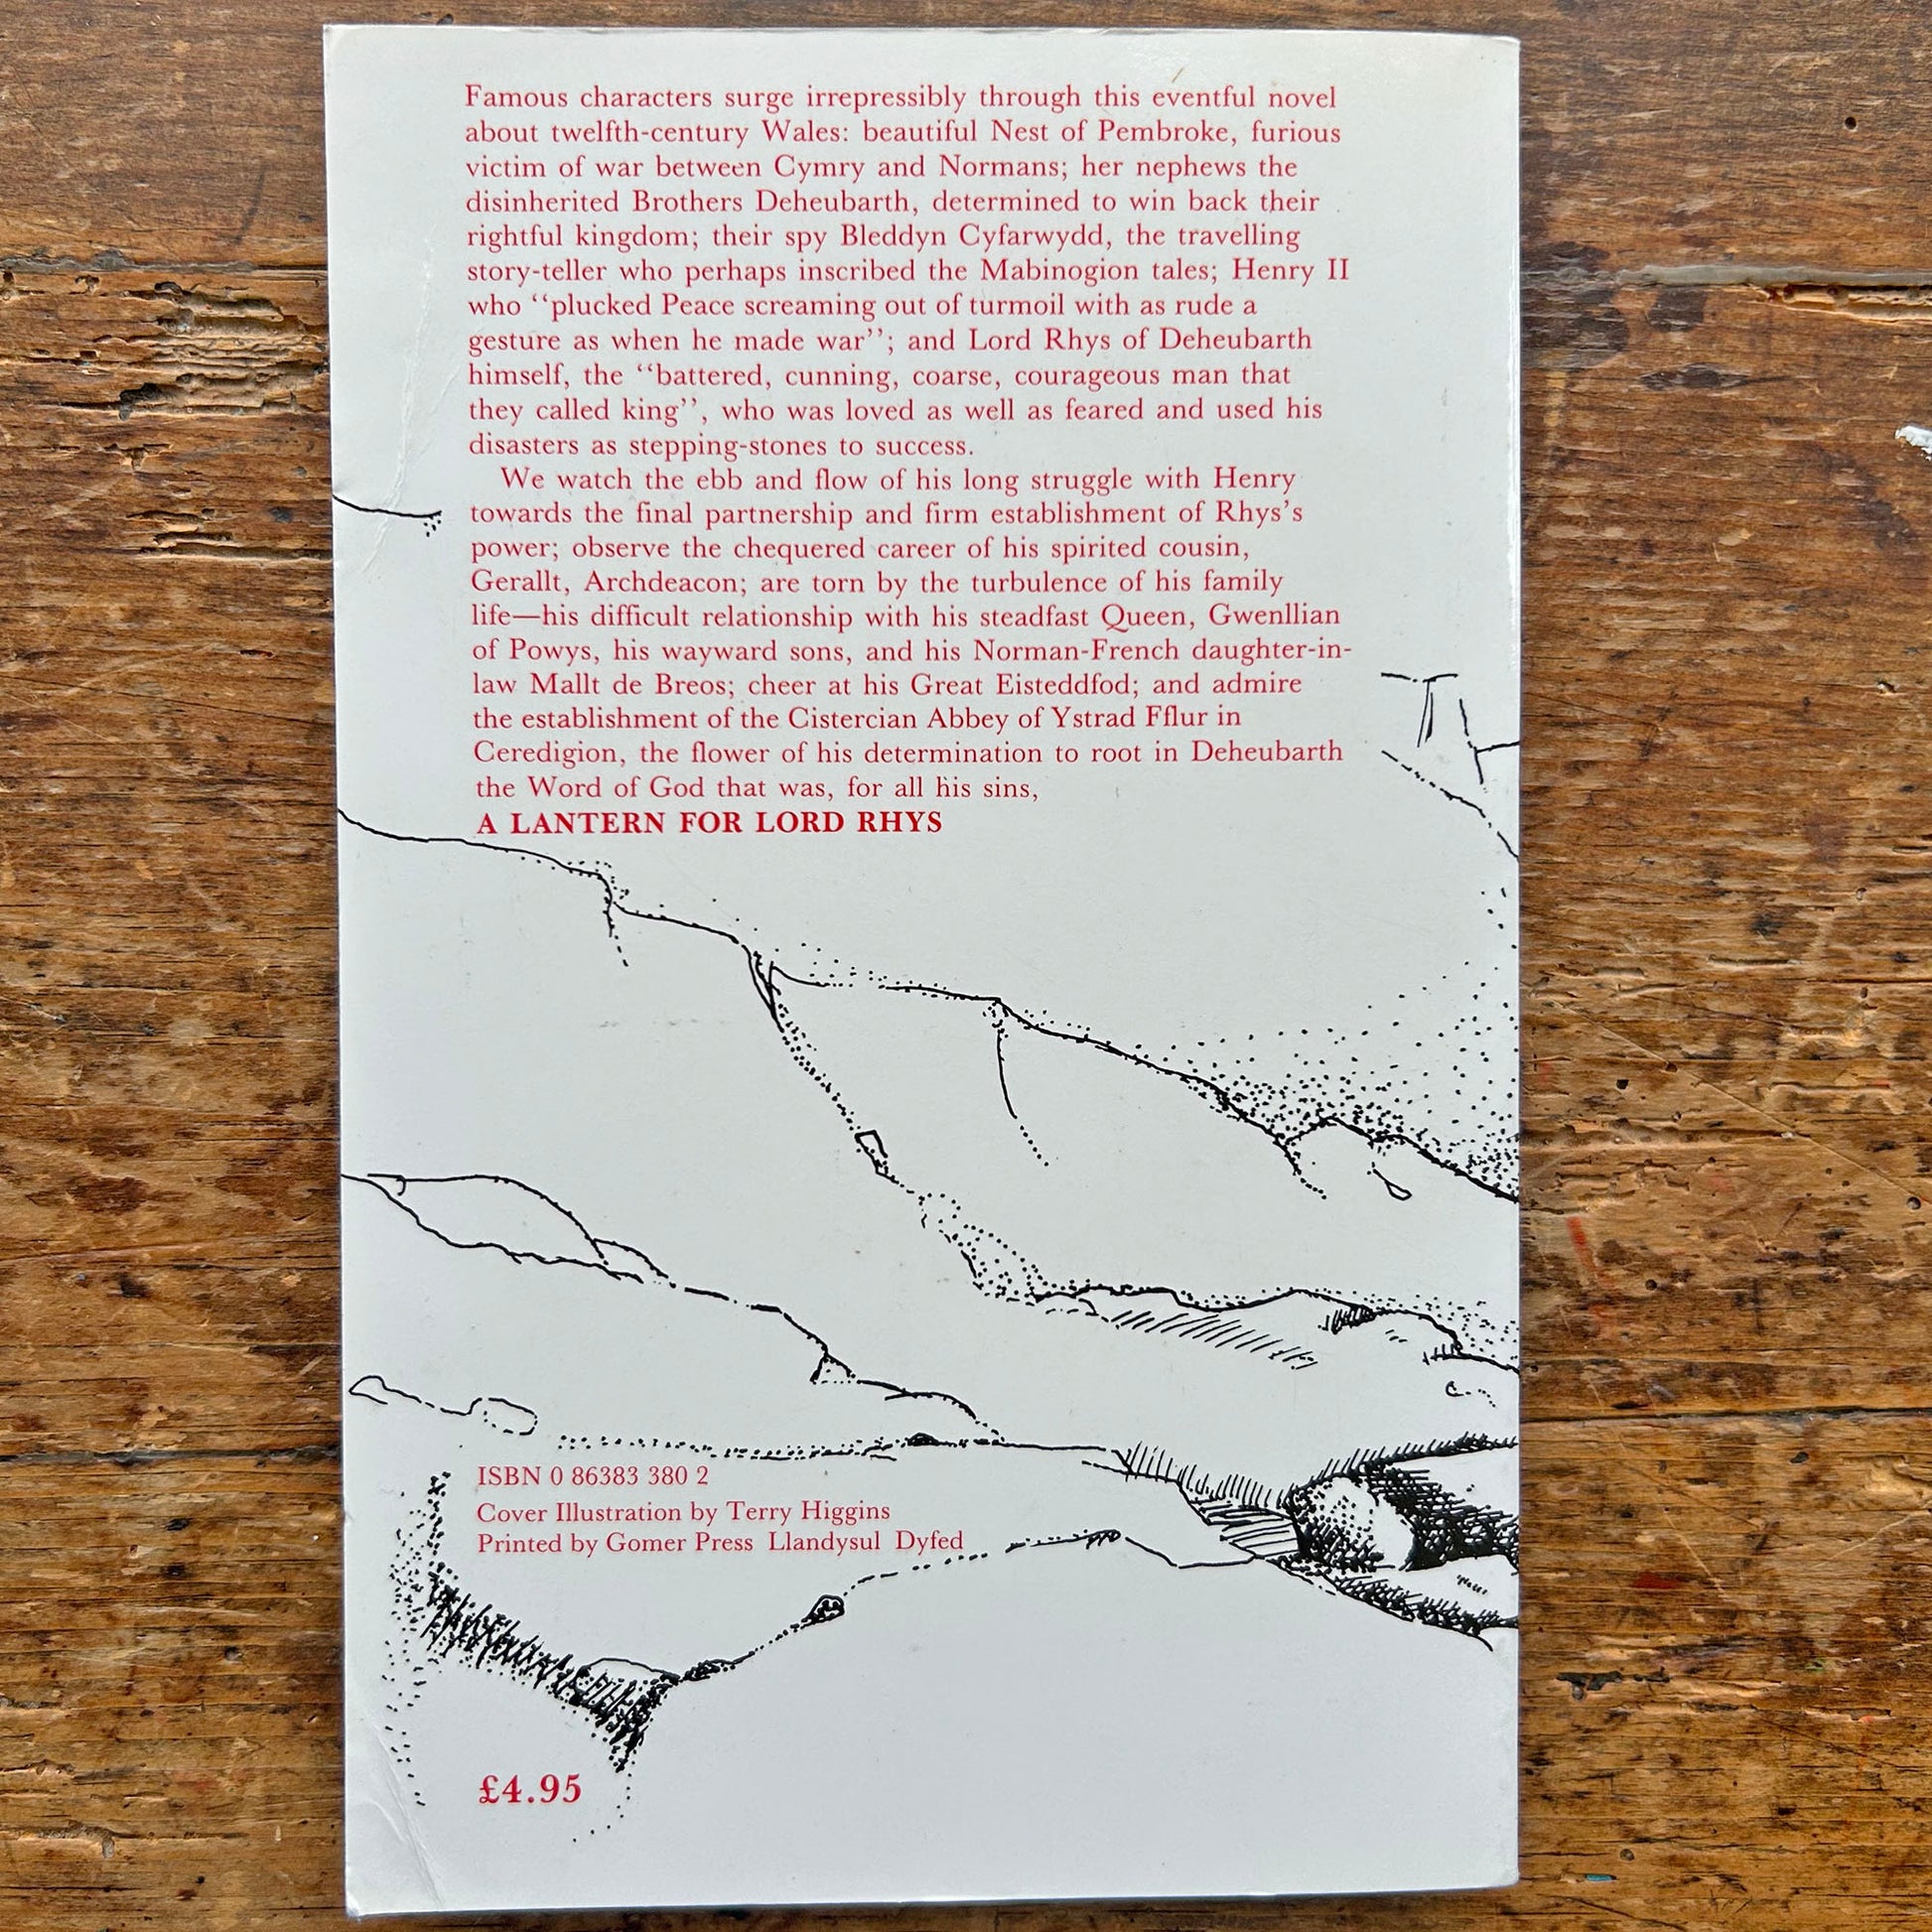 Famous characters surge irrepressibly through this eventful novel
about twelfth-century Wales: beautiful Nest of Pembroke, furious
victim of war between Cymry and Normans; her nephews the
disinherited Brothers Deheubarth, determined to win back their
rightful kingdom; their spy Bleddyn Cyfarwydd, the travelling
story-teller who perhaps inscribed the Mabinogion tales; Henry II
who ‘‘plucked Peace screaming out of turmoil with as rude a
gesture as when he made war’’; and Lord Rhys of Deheubarth
himself, the ‘‘battered, cunning, coarse, courageous man that
they called king’’, who was loved as well as feared and used his
disasters as stepping-stones to success.
We watch the ebb and flow of his long struggle with Henry
towards the final partnership and firm establishment of Rhys’s
power; observe the chequered career of his spirited cousin,
Gerallt, Archdeacon; are torn by the turbulence of his family
life—his difficult relationship with his steadfast Queen, Gwenllian
of Powys, his wayward sons, and his Norman-French daughter-in-
law Mallt de Breos; cheer at his Great Eisteddfod; and admire
the establishment of the Cistercian Abbey of Ystrad Fflur in
Ceredigion, the flower of his determination to root in Deheubarth
the Word of God that was, for all his sins,
A LANTERN FOR LORD RHYS
ISBN 0 86383 380 2
Cover Illustration by Terry Higgins
Printed by Gomer Press Llandysul Dyfed
£4.95